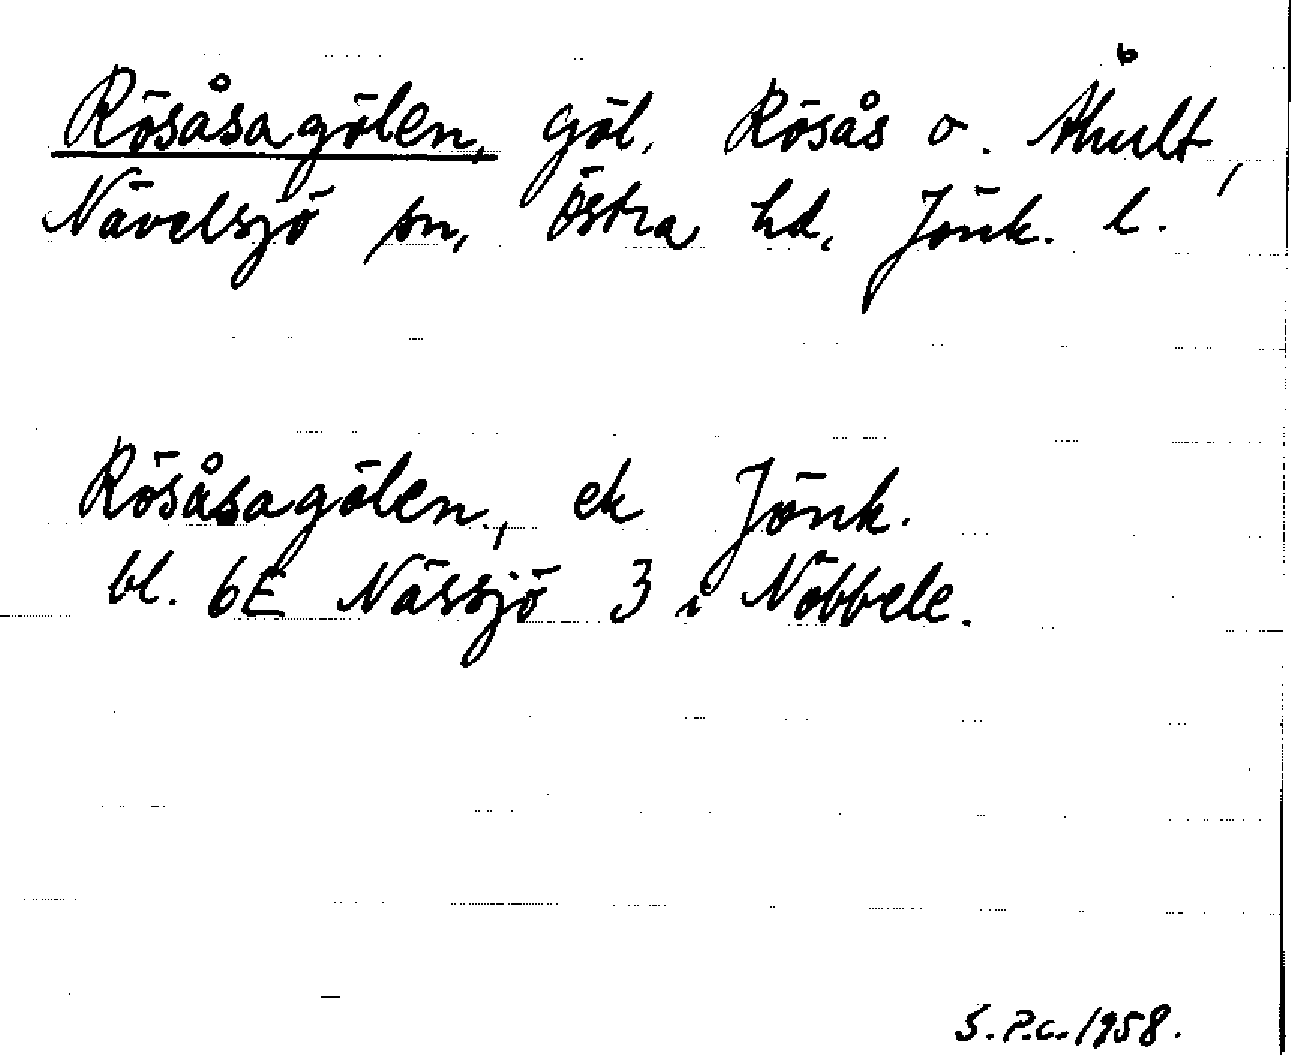 Rösåsagölen, göl, Rösås o. Åhult,
Nävelsjö sn, Östra hd, Jönk. l.
Rösåsagölen, ek Jönk.
bl. 6E Nässjö 3 i Nöbbele.
S.P.C. 1958.